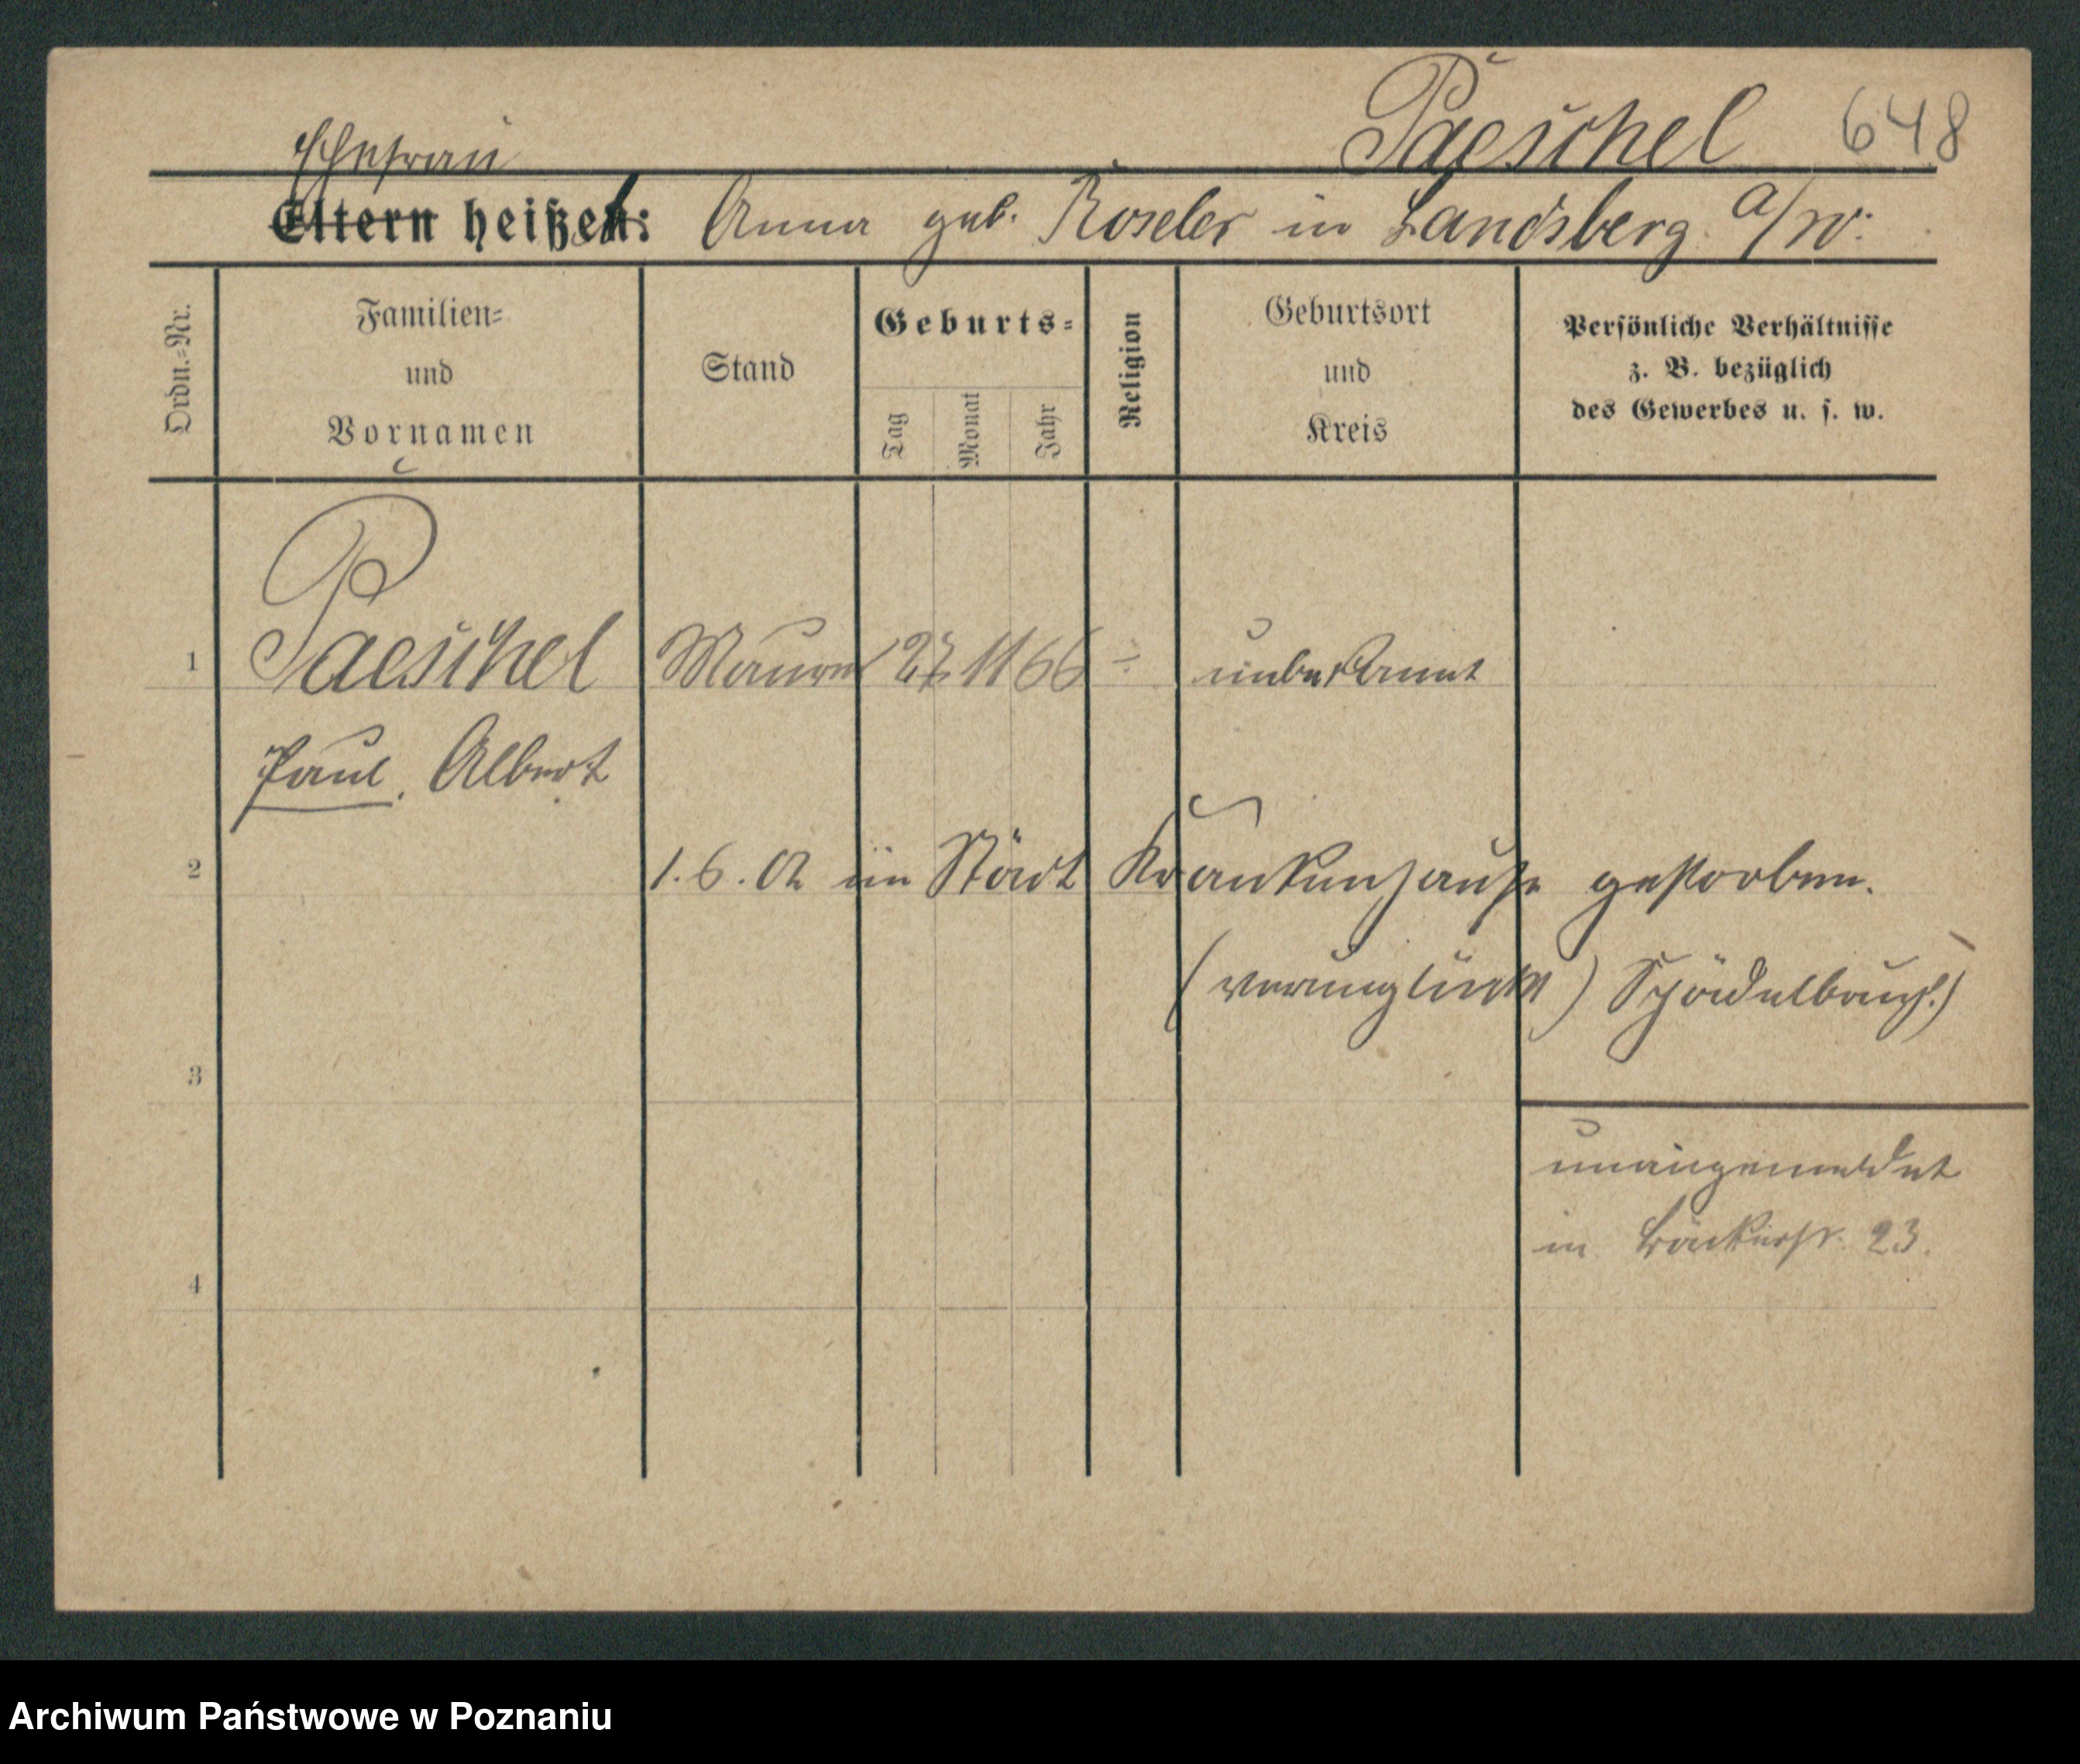 Paeschel 648
Ehefrau
Eltern heißen: Anna geb. Röseler in Landsberg a/W.
Ordn.=Nr.
Familien=
und
Vornamen
Stand
Geburts=
Tag
Monat
Jahr
Religion
Geburtsort
und
Kreis
Persönliche Verhältnisse
z. B. bezüglich
des Gewerbes u. s. w.
1 Paeschel Maurer 27 11 66 ÷ unbekannt
Paul, Albert
2 1.6.02 im Städt Krankenhause gestorben.
(verunglückt) Schädelbruch.)
3
unangemeldet
in Bäckerstr. 23.
4
Archiwum Państwowe w Poznaniu